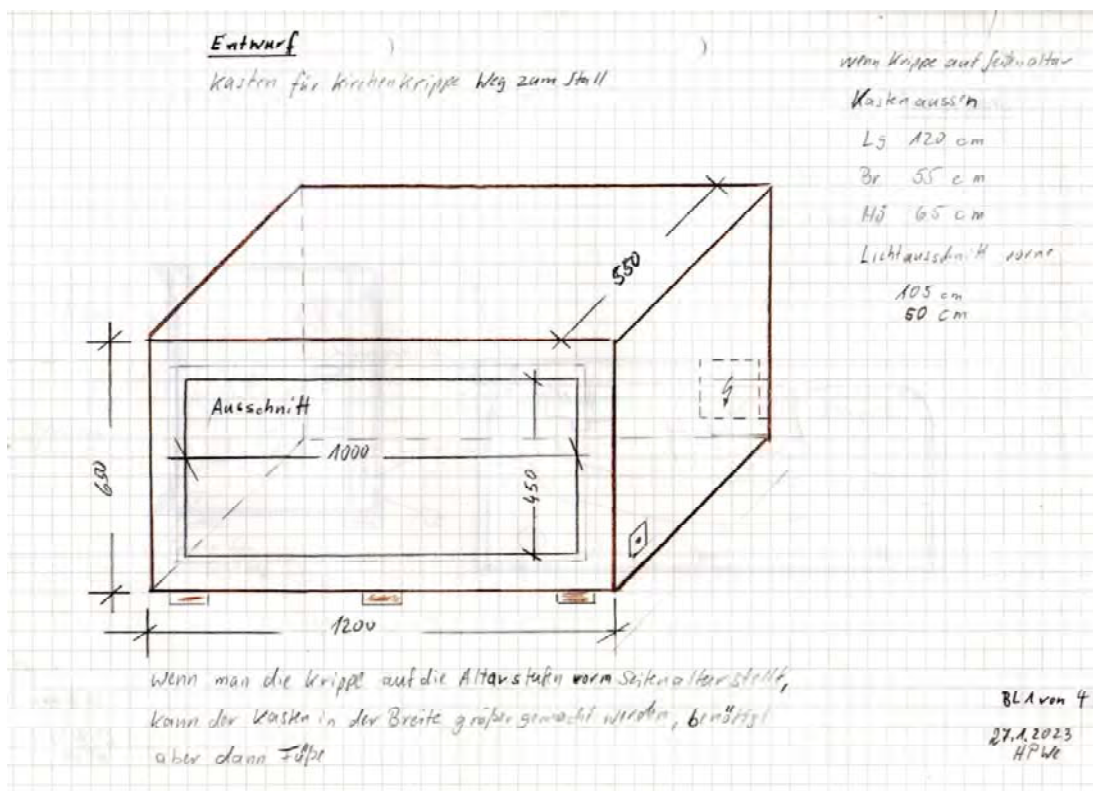 Entwurf
Kasten für Kirchenkrippe Weg zum Stall
wenn Krippe auf Seitenaltar
Kasten aussen
Lg 120 cm
Br 55 cm
Hö 65 cm
Lichtausschnitt vorne
105 cm
50 cm
550
Ausschnitt
1000
450
650
1200
wenn man die Krippe auf die Altarstufen vorm Seitenaltar stellt,
kann der Kasten in der Breite größer gemacht werden, benötigt
aber dann Füße
BL 1 von 4
27.1.2023
HPWe